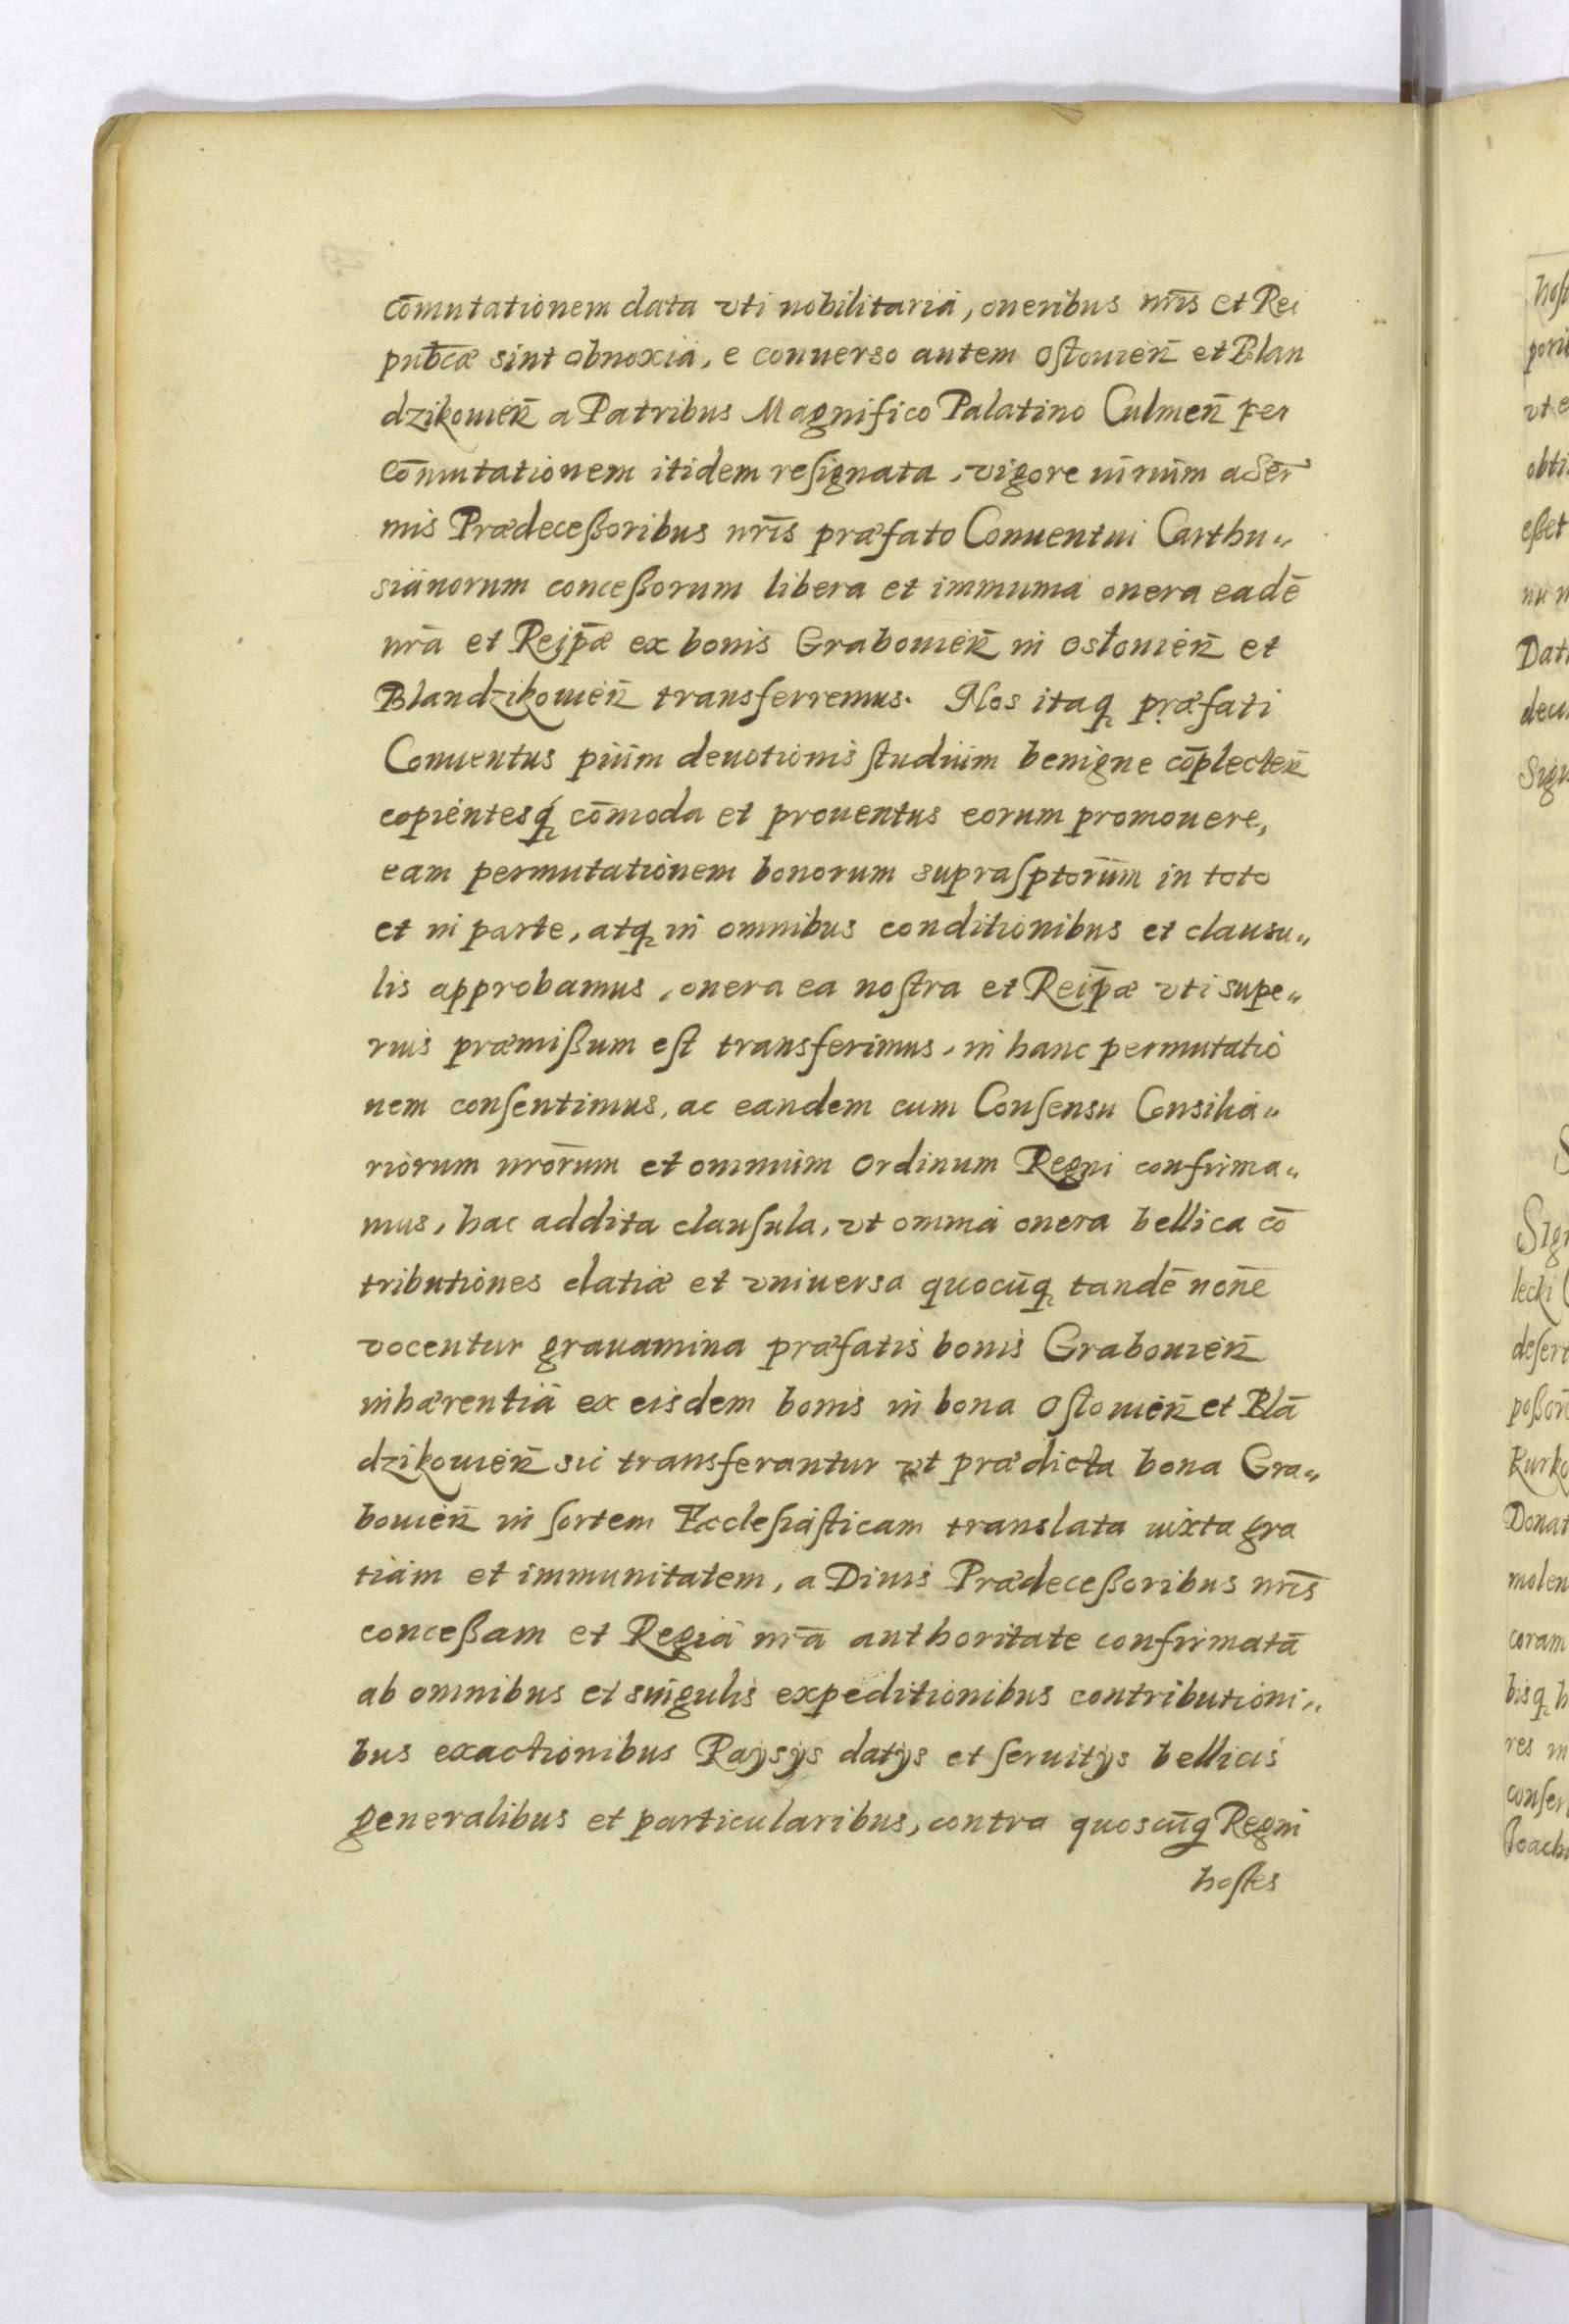 co̅mutationem data vti nobilitaria, oneribus nr̅is et Rei
pub̅cæ sint obnoxia, e conuerso autem Oſtouien̅ et Blan
dzikouien̅ a Patribus Magnifico Palatino Culmen̅ per
co̅mutationem itidem reſignata, vigore iurium a Ser̅
mis Prædeceßoribus nr̅is præfato Conuentui Carthu„
sianorum conceßorum libera et immunia onera eade̅
nr̅a et Reip̅æ ex bonis Grabouien̅ in Ostouien̅ et
Blandzikouien̅ transferremus. Nos itaq præfati
Conuentus pium deuotionis ſtudium benigne co̅plecten̅
cupientesq́ co̅moda et prouentus eorum promouere,
eam permutationem bonorum supraſptoru̅m in toto
et in parte, atq in omnibus conditionibus et clausu„
lis approbamus, onera ea noſtra et Reip̅æ vti supe„
rius præmißum eſt transferimus, in hanc permutatio
nem conſentimus, ac eandem cum Conſensu Consilia„
riorum nro̅rum et omnium Ordinum Regni confirma„
mus, hac addita clauſula, vt omnia onera bellica co̅
tributiones datiæ et vniuersa quocu̅q tande̅ no̅ne
vocentur grauamina præfatis bonis Grabouien̅
inhærentia ex eisdem bonis in bona Oſtouien̅ et Bla̅
dzikouien̅ sic transferantur vt prædicta bona Gra„
bouien̅ in ſortem Eccleſiaſticam translata iuxta gra
tiam et immunitatem, a Diuis Prædeceßoribus nr̅is
conceßam et Regia nr̅a authoritate confirmata̅
ab omnibus et singulis expeditionibus contributioni„
bus exactionibus Raysÿs datÿs et ſeruitÿs bellicis
generalibus et particularibus, contra quoscu̅q Regni
hoſtes